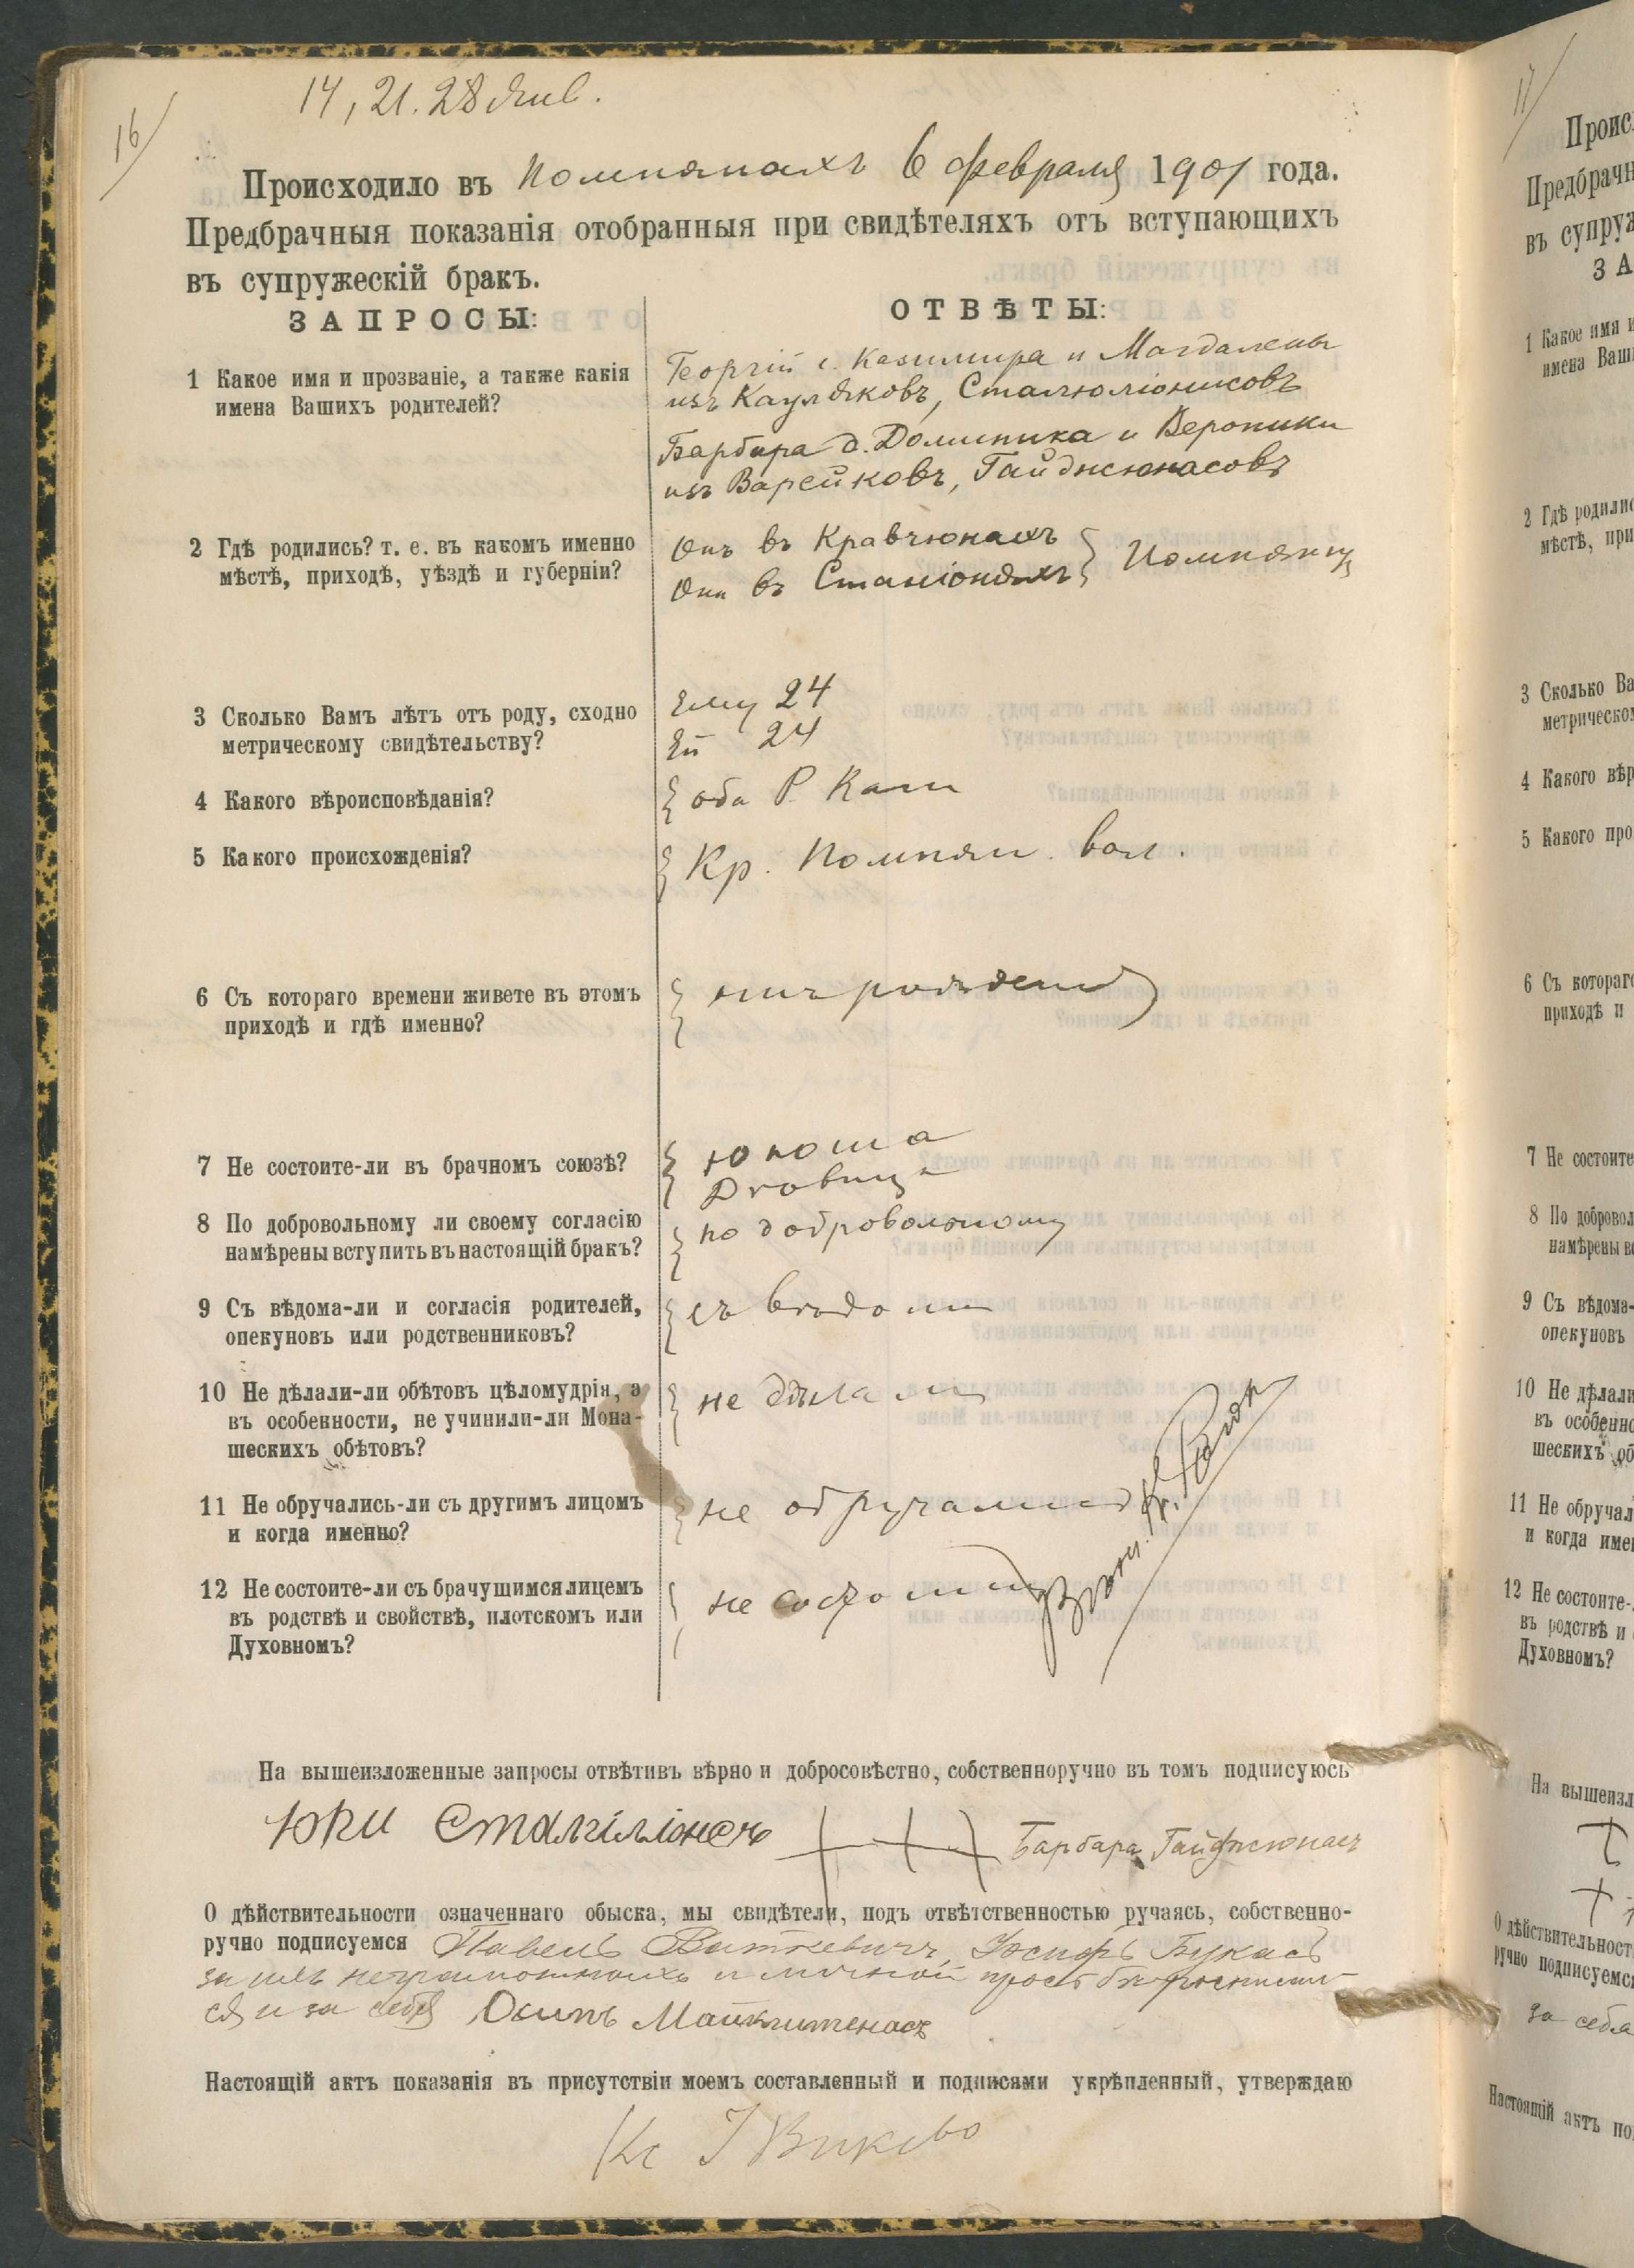 14, 21. 28 Янв.
16/
Происходило въ Помпянахъ 6 февраля 1901 года.
Предбрачныя показанія отобранныя при свидѣтеляхъ отъ вступающихъ
въ супружескій бракъ.
ЗАПРОСЫ:
ОТВѢТЫ:
1 Какое имя и прозваніе, а также какія
имена Вашихъ родителей?
Георгій с. Казимира и Магдалены
изъ Кауляковъ, Сталюліонисовъ
Барбара д. Доминика и Вероники
изъ Варейковъ, Гайджюнасовъ
2 Гдѣ родились? т. е. въ какомъ именно
мѣстѣ, приходѣ, уѣздѣ и губерніи?
Онъ въ Кравчюнахъ
Она въ Станіоняхъ
3 Сколько Вамъ лѣтъ отъ роду, сходно
метрическому свидѣтельству?
Ему 24
Ей 24
4 Какого вѣроисповѣданія?
оба Р. Кат
5 Какого происхожденія?
Кр. Помпян. вол.
6 Съ котораго времени живете въ этомъ
приходѣ и гдѣ именно?
7 Не состоите-ли въ брачномъ союзѣ?
юноша
Дѣвица
8 По добровольному ли своему согласію
намѣрены вступить въ настоящій бракъ?
по добровольному
9 Съ вѣдома-ли и согласія родителей,
опекуновъ или родственниковъ?
съ вѣдома
10 Не дѣлали-ли обѣтовъ цѣломудрія, а
въ особенности, не учинили-ли Мона-
шескихъ обѣтовъ?
не дѣлали
11 Не обручались-ли съ другимъ лицомъ
и когда именно?
не обручались
12 Не состоите-ли съ брачушимся лицемъ
въ родствѣ и свойствѣ, плотскомъ или
Духовномъ?
не состоимъ
На вышеизложенные запросы отвѣтивъ вѣрно и добросовѣстно, собственноручно въ томъ подписуюсь
+ + + Барбара Гайджюнасъ
О дѣйствительности означеннаго обыска, мы свидѣтели, подъ отвѣтственностью ручаясь, собственно-
ручно подписуемся Павелъ Виткевичъ, Іосифъ Букасъ
за нихъ неграмотныхъ и личной прозьбы росписал-
ся и за себя Осипъ
Настоящій актъ показанія въ присутствіи моемъ составленный и подписями укрѣпленный, утверждаю
Кс І
17/
Проис
Предбрачн
въ супруж
ЗА
1 Какое имя и
имена Ваши
2 Гдѣ родилис
мѣстѣ, при
3 Сколько Ва
метрическо
4 Какого вѣр
5 Какого про
6 Съ котораг
приходѣ и
7 Не состоите
8 По доброво
намѣрены в
9 Съ вѣдома-
опекуновъ
10 Не дѣлали
въ особенно
шескихъ об
11 Не обручал
и когда име
12 Не состоите-
въ родствѣ и
Духовномъ?
На вышеизл
О дѣйствительност
ручно подписуемс
за себя
Настоящій актъ по